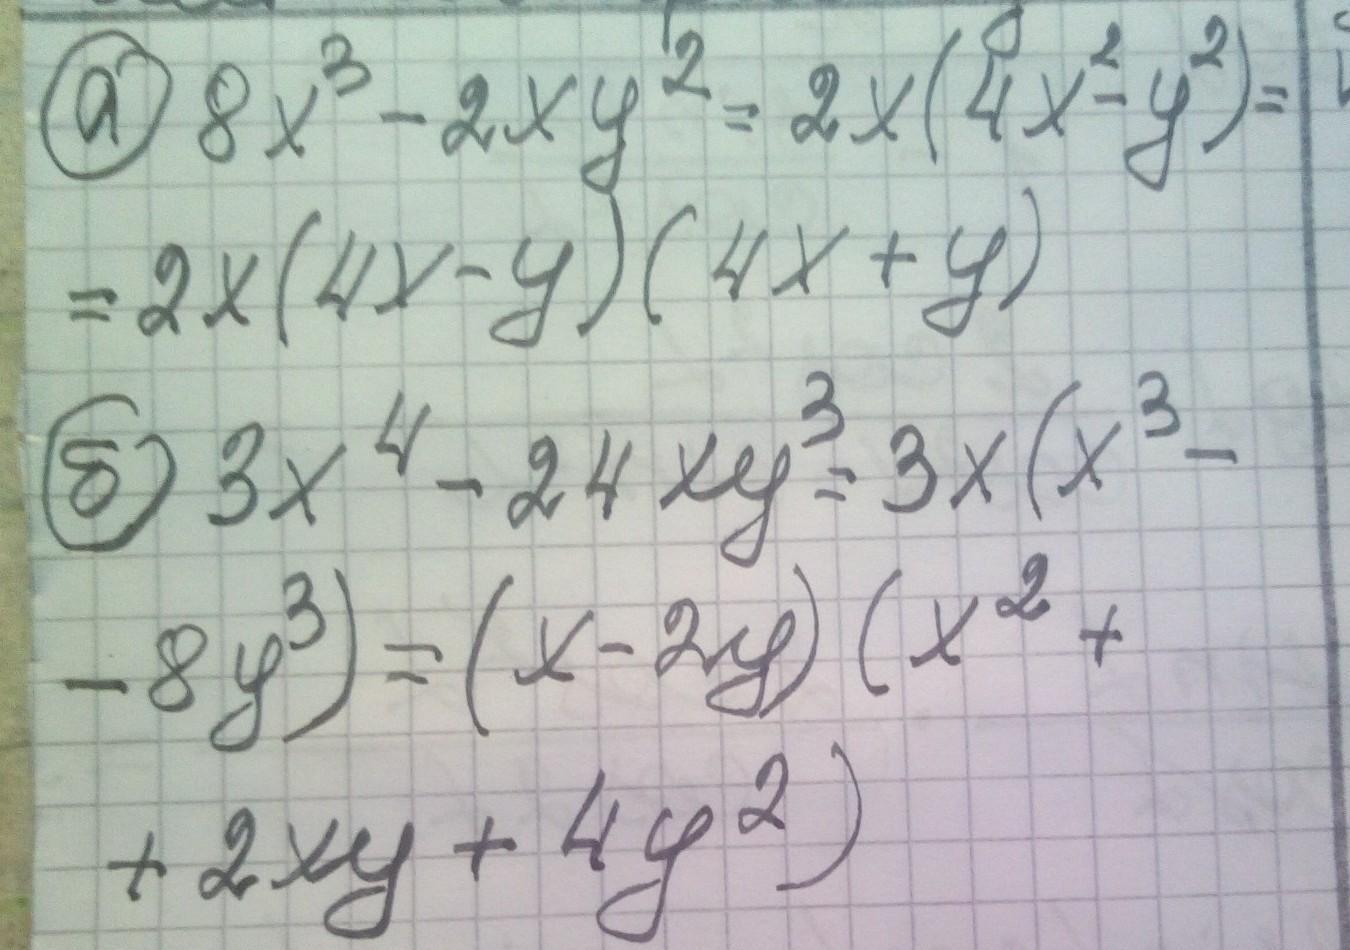 а) 8x³ - 2xy² = 2x(4x² - y²) =
= 2x(4x - y)(4x + y)
б) 3x⁴ - 24xy³ = 3x(x³ -
- 8y³) = (x - 2y)(x² +
+ 2xy + 4y²)